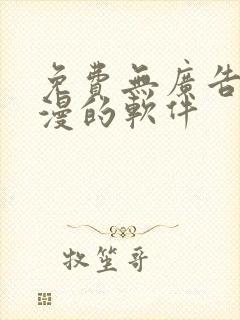 免費無廣告
漫的軟件
牧笙哥